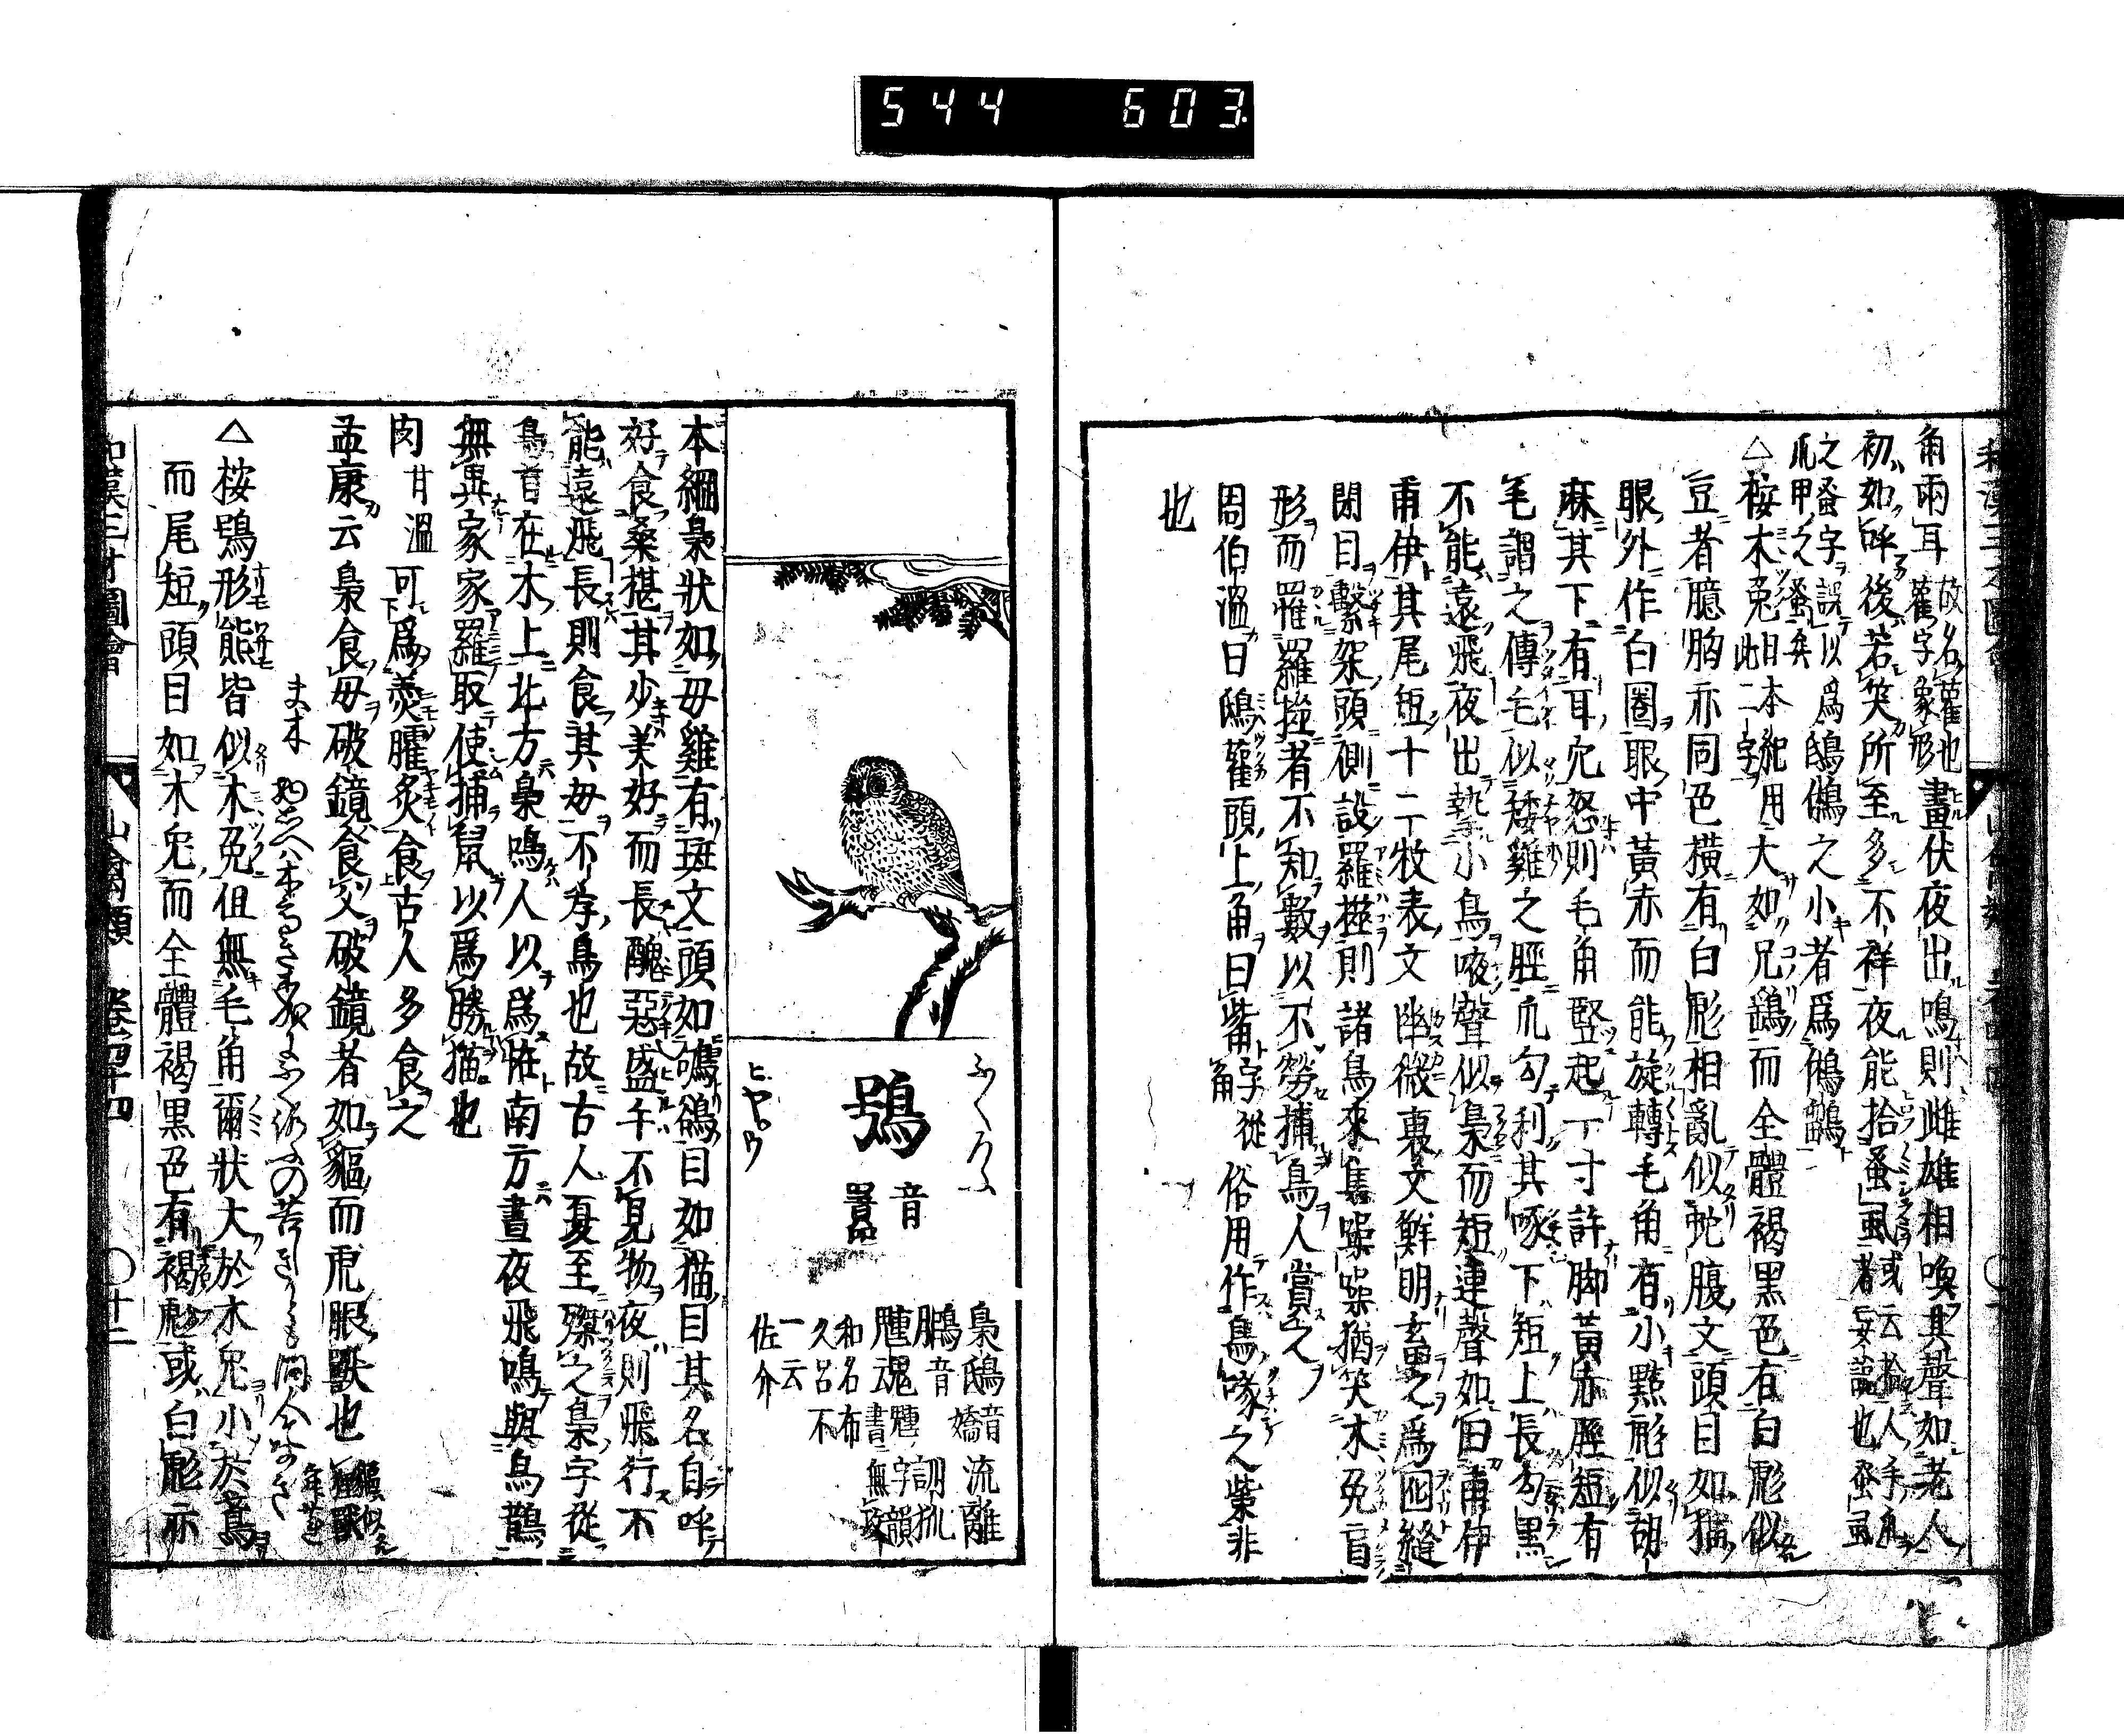 544 603
角兩耳 故名雚也雚字象形 晝伏夜出鳴則雌雄相喚其聲如老人
初如呼後若笑所至多不祥夜能拾蚤虱 或云拾人手爪者妄說也蚤虱
之蚤字誤以爪甲之蚤矣 爲鴟鵂之小者爲鵂鶹
△桉木兔 日本紀用此二字 大如兄鷂而全體褐黑色有白彪似
豆者臆胸亦同色橫有白彪相亂似蛇腹文頭目如猫
眼外作白圈眼中黃赤而能旋轉毛角有小點彪似胡
麻其下有耳穴怒則毛角竪起一寸許脚黃赤脛短有
毛謂之傳毛似矮雞之脛爪勾利其啄下短上長勾黑
不能遠飛夜出執小鳥唼聲似梟而短連聲如曰甫伊
甫伊其尾短十二枚表文幽微裏文鮮明玄畧之爲囮縫
閉目繫架頭側設羅擌則諸鳥來集噪噪猶笑木兔盲
形而罹羅擌者不知數以不勞捕鳥人賞之
周伯溫曰鴟雚頭上角曰觜 字從角 俗用作鳥喙之柴非
也
ふくろふ
鴞 音囂
ヒヤウ
梟鴟 音嬌 流離
鵩 音 訓狐
魂 字韻書無攷
和名布
久呂不
一云
佐介
本綱梟狀如母雞有斑文頭如鴝鵒目如猫目其名自呼
好食桑椹其少美好而長醜惡盛午不見物夜則飛行不
能遠飛長則食其母不孝鳥也故古人夏至磔之梟字從
鳥首在木上北方梟鳴人以爲恠南方晝夜飛鳴與鳥鵲
無異家家羅取使捕鼠以爲勝猫也
肉 甘溫 可爲羹臛炙食古人多食之
孟康云梟食母破鏡食父破鏡者如貙而虎眼獸也
夫木
△桉鴞形態皆似木兔但無毛角爾狀大於木兔小於鳶
而尾短頭目如木兔而全體褐黑色有褐彪或白彪亦
和漢三才圖會 山禽類 卷四十四 〇十二